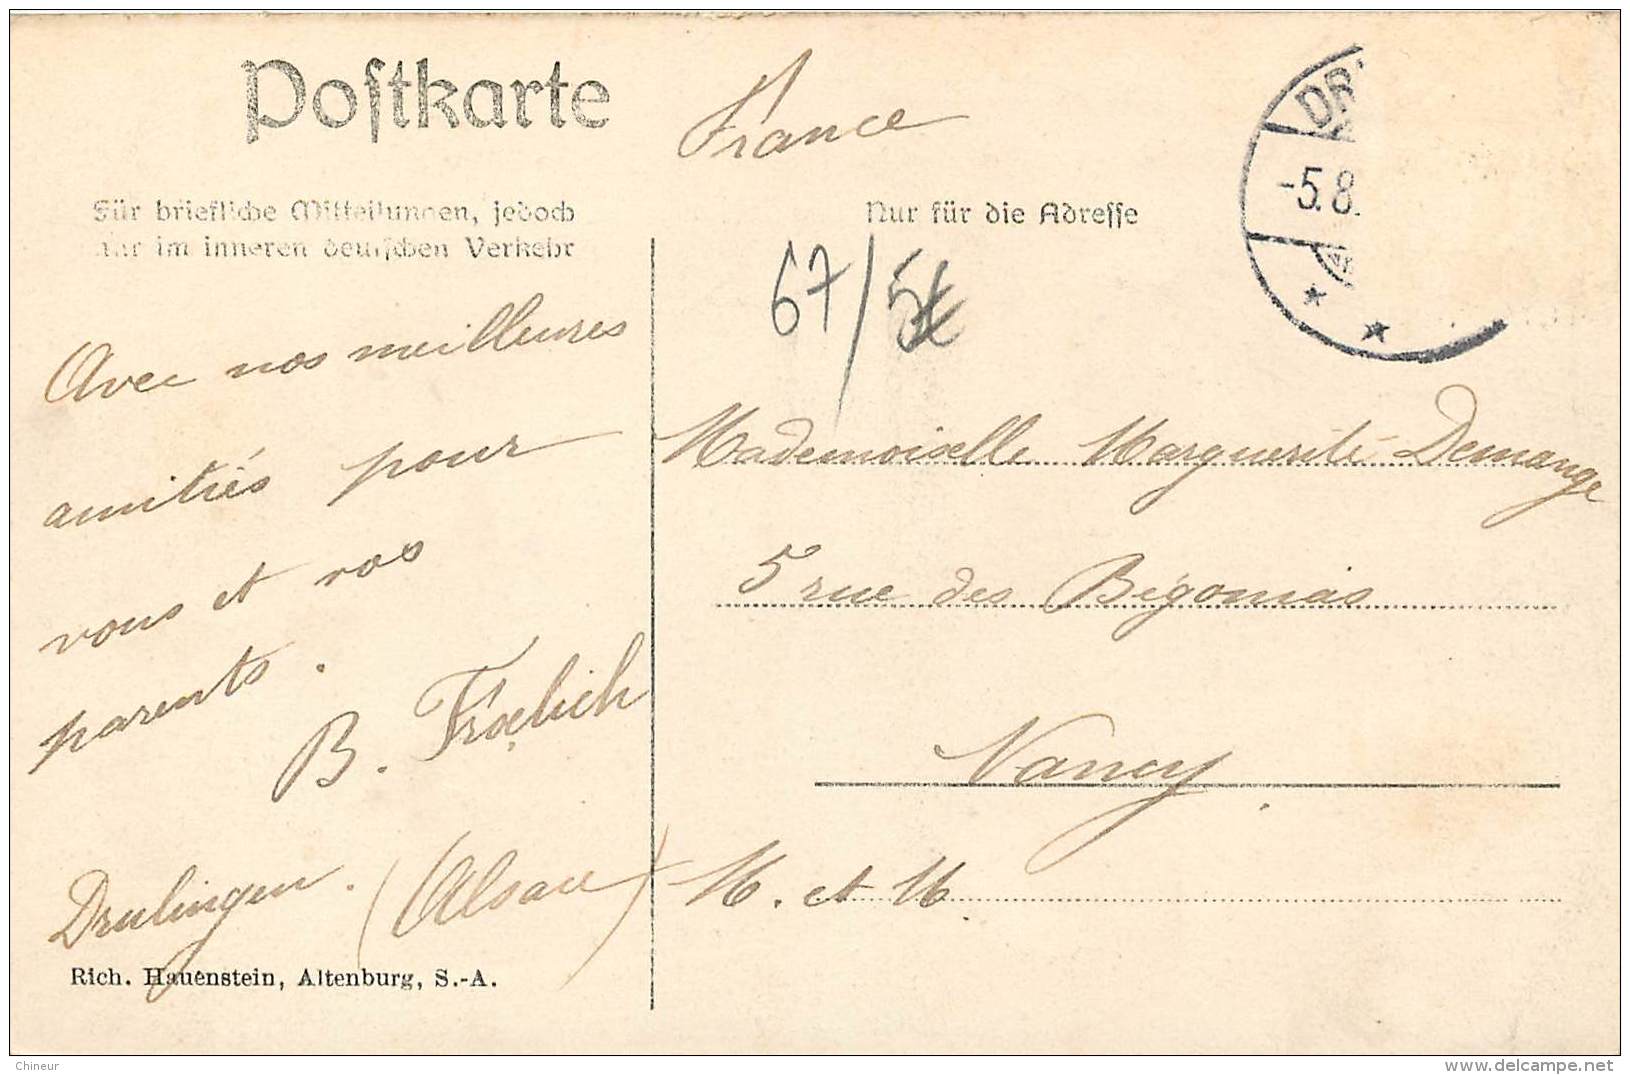 Postkarte
Für briefliche Mitteilungen, jedoch
nur im inneren deutschen Verkehr
France
Nur für die Adresse
DR
-5.8.
67/5€
Avec nos meilleures
amitiés pour
vous et vos
parents.
B. Froelich
Drulingen. (Alsace)
Mademoiselle Marguerite Demange
5 rue des Bégonias
Nancy.
M. et M.
Rich. Hauenstein, Altenburg, S.-A.
Chineur
delcampe.net